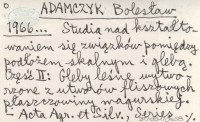 ADAMCZYK Bolesław
1966... Studia nad kształto-
waniem się związków pomiędzy
podłożem skalnym i glebą.
Część II: Gleby leśne wytwo-
rzone z utworów fliszowych
płaszczowiny magurskiej.
- Acta Agr. et Silv., Series ./.